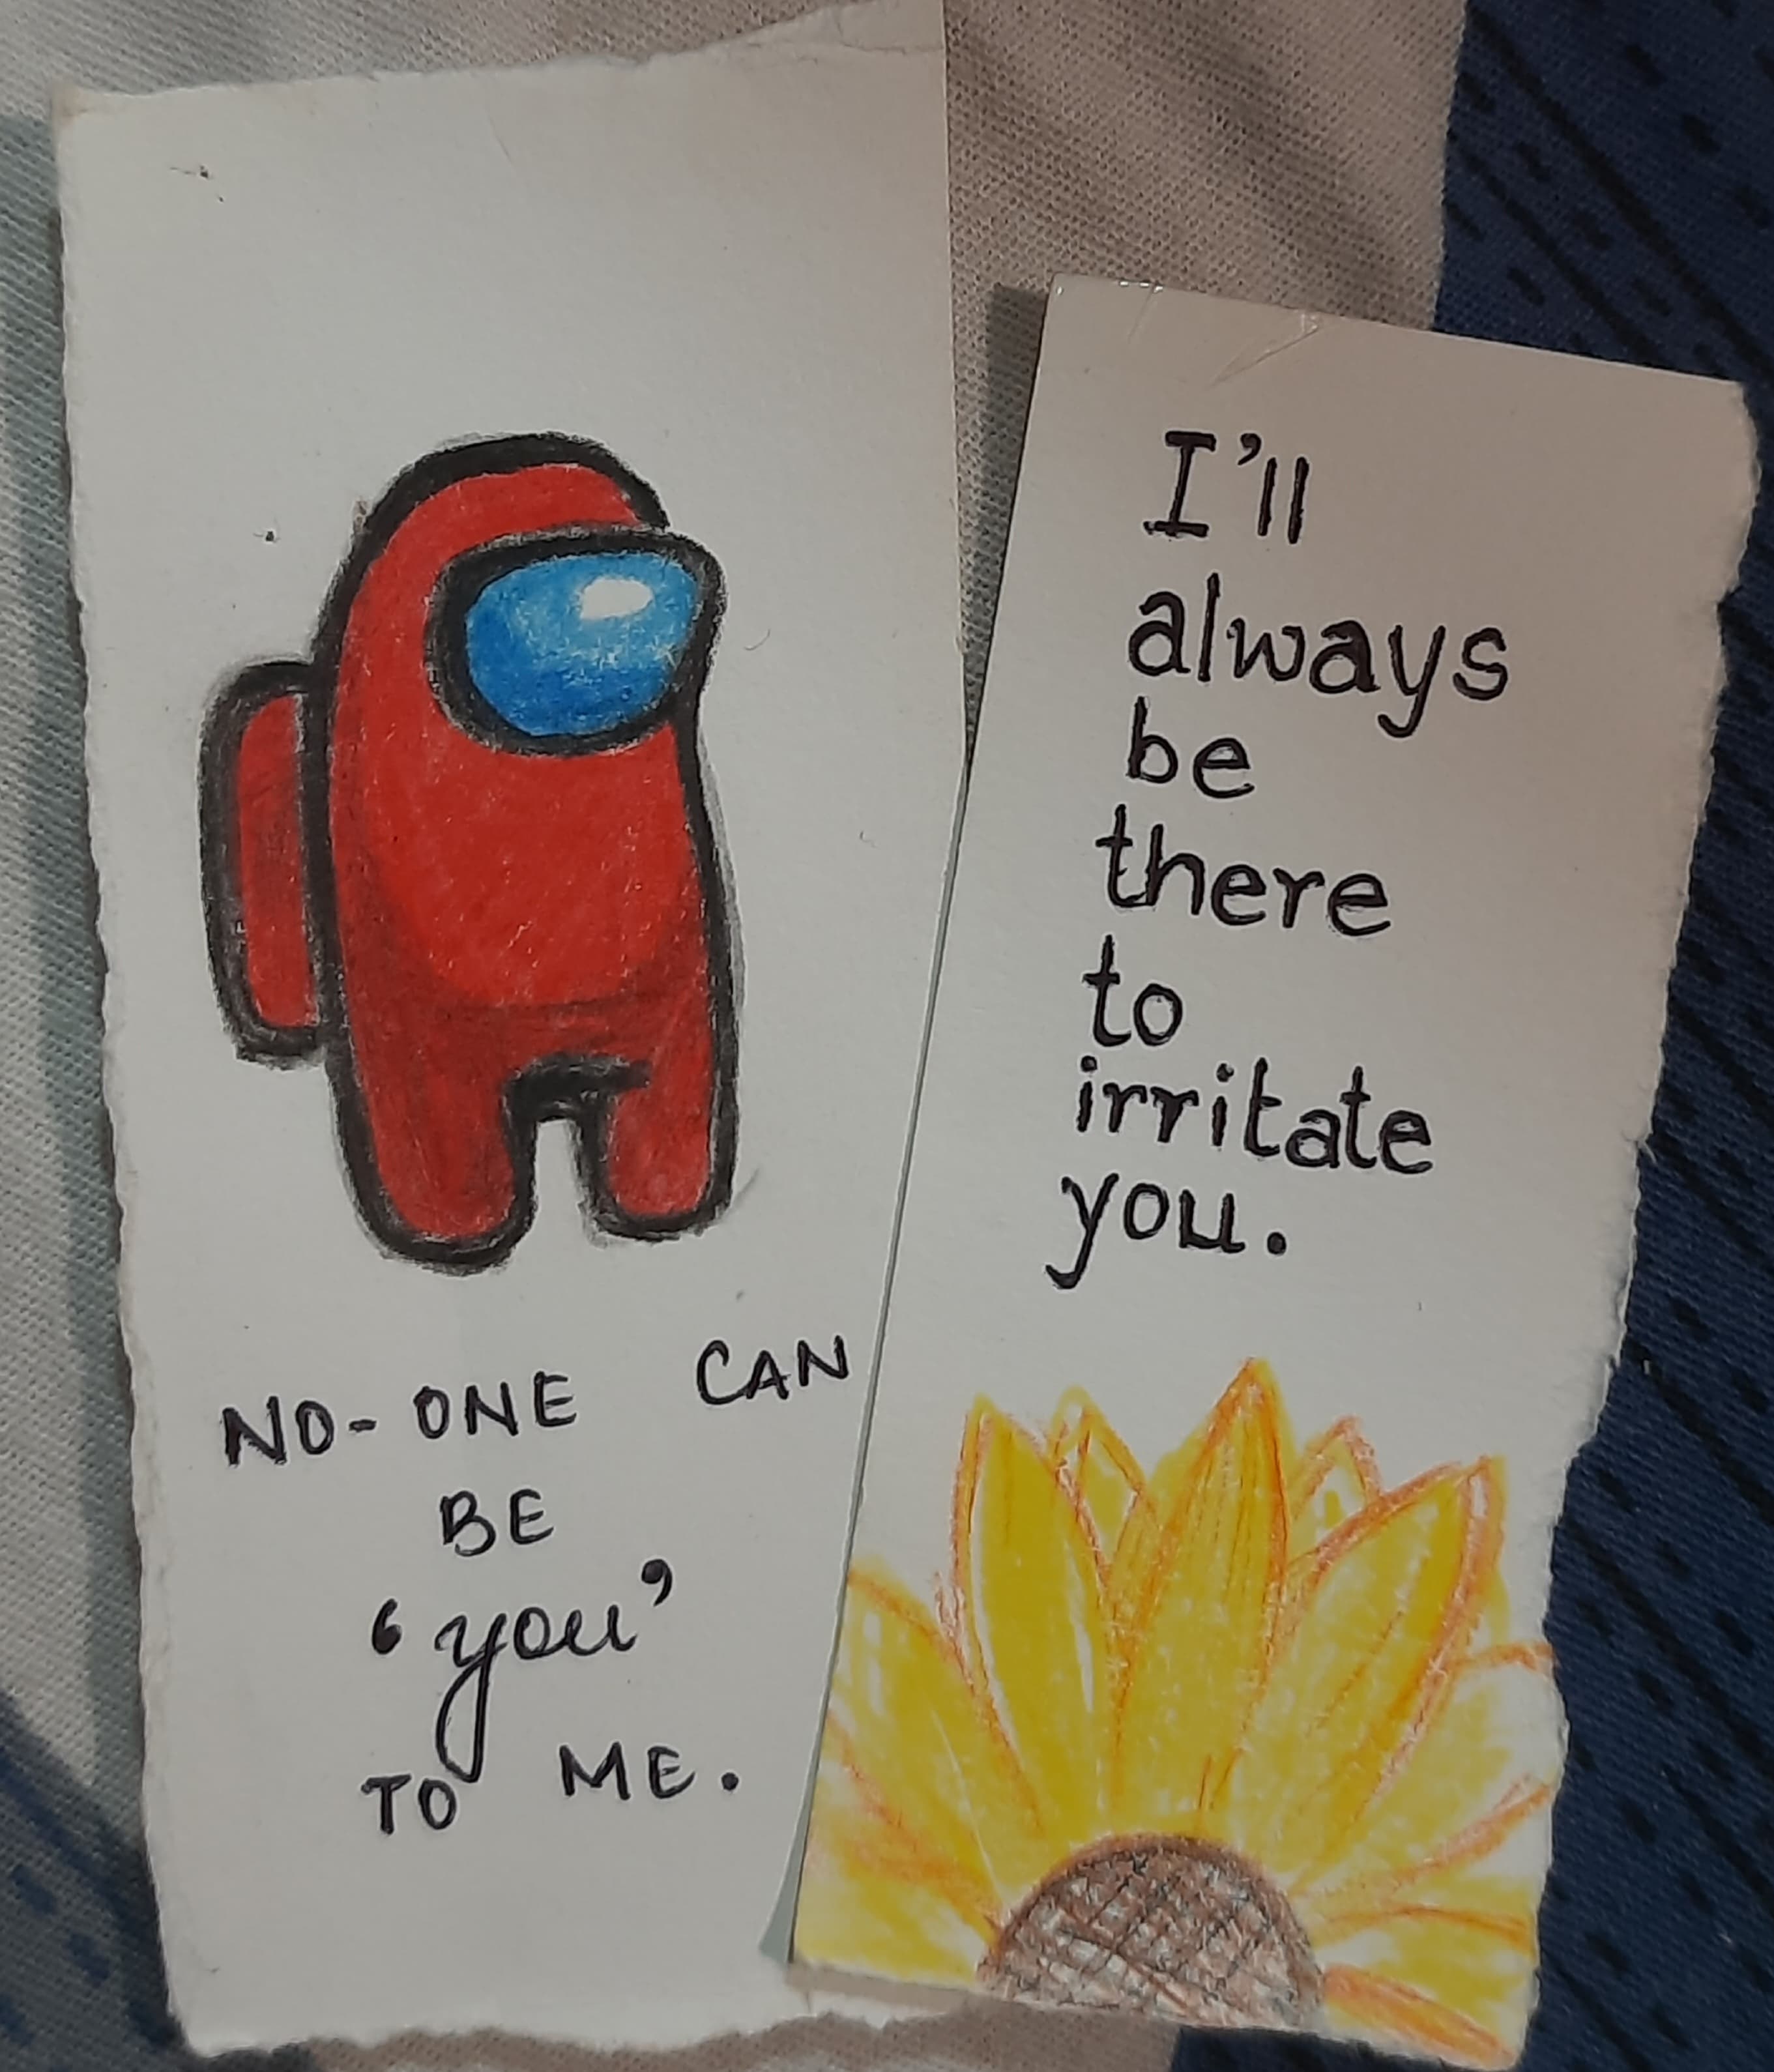 NO-ONE CAN
BE
‘you’
TO ME.
I'll
always
be
there
to
irritate
you.